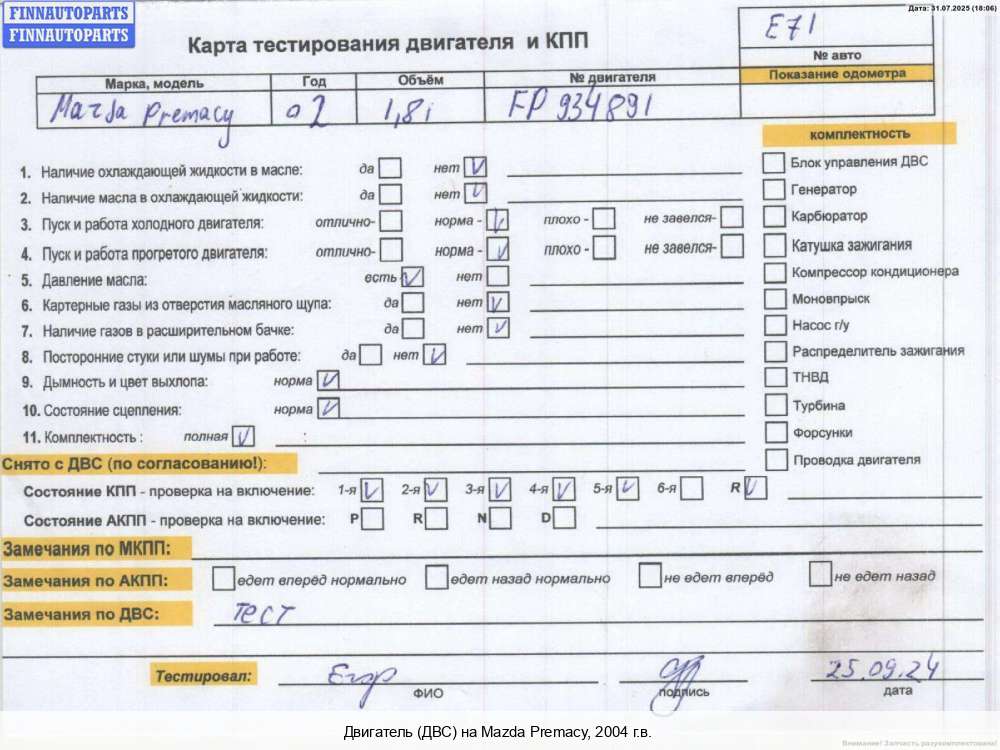 FINNAUTOPARTS
FINNAUTOPARTS
Дата: 31.07.2025 (18:06)
Карта тестирования двигателя и КПП
E71
№ авто
Показание одометра
Марка, модель Год Объём № двигателя
Mazda Premacy 02 1,8i FP 934891
комплектность
1. Наличие охлаждающей жидкости в масле: да нет
2. Наличие масла в охлаждающей жидкости: да нет
3. Пуск и работа холодного двигателя: отлично- норма - плохо - не завелся-
4. Пуск и работа прогретого двигателя: отлично- норма - плохо - не завелся-
5. Давление масла: есть нет
6. Картерные газы из отверстия масляного щупа: да нет
7. Наличие газов в расширительном бачке: да нет
8. Посторонние стуки или шумы при работе: да нет
9. Дымность и цвет выхлопа: норма
10. Состояние сцепления: норма
11. Комплектность : полная
Блок управления ДВС
Генератор
Карбюратор
Катушка зажигания
Компрессор кондиционера
Моновпрыск
Насос г/у
Распределитель зажигания
ТНВД
Турбина
Форсунки
Проводка двигателя
Снято с ДВС (по согласованию!):
Состояние КПП - проверка на включение: 1-я 2-я 3-я 4-я 5-я 6-я R
Состояние АКПП - проверка на включение: P R N D
Замечания по МКПП:
Замечания по АКПП: едет вперёд нормально едет назад нормально не едет вперёд не едет назад
Замечания по ДВС: тест
Тестировал: Егор 25.09.24
ФИО подпись дата
Двигатель (ДВС) на Mazda Premacy, 2004 г.в.
Внимание! Запчасть разукомплектована!